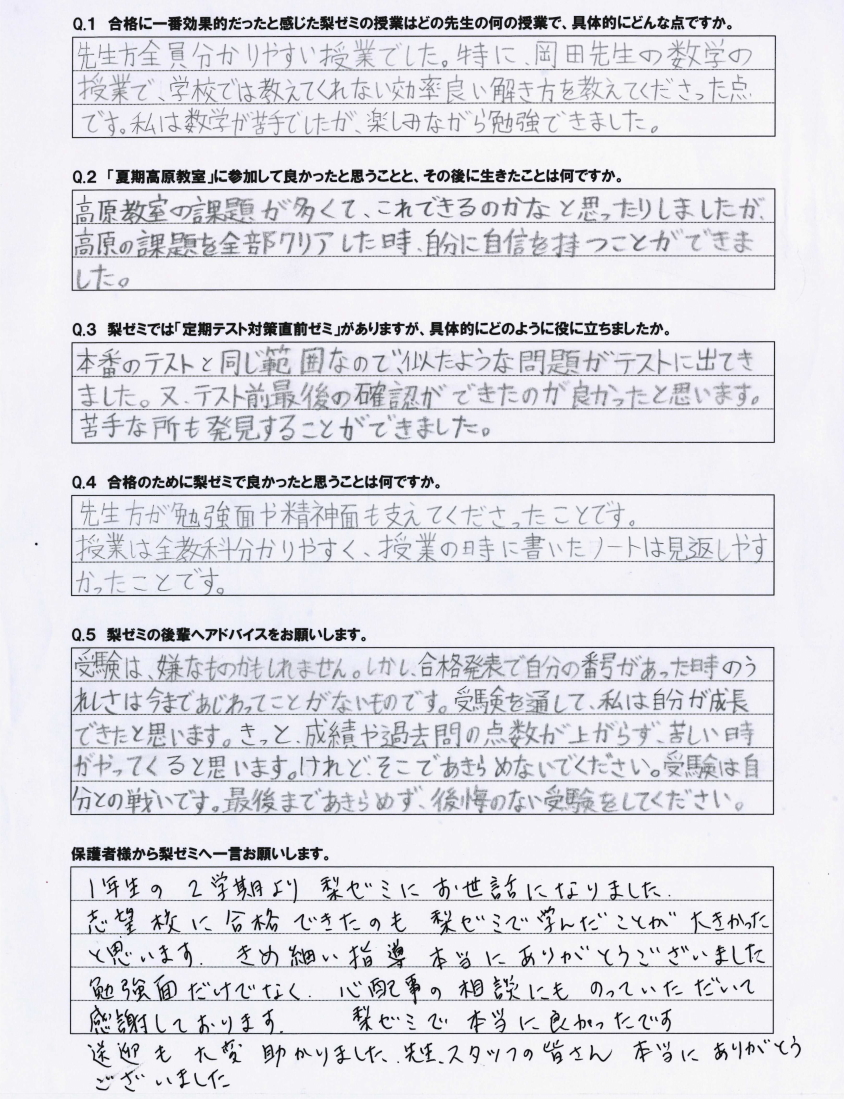 Q.1 合格に一番効果的だったと感じた梨ゼミの授業はどの先生の何の授業で、具体的にどんな点ですか。
先生方全員分かりやすい授業でした。特に、岡田先生の数学の
授業で、学校では教えてくれない効率良い解き方を教えてくださった点
です。私は数学が苦手でしたが、楽しみながら勉強できました。
Q.2 「夏期高原教室」に参加して良かったと思うことと、その後に生きたことは何ですか。
高原教室の課題が多くて、これできるのかなと思ったりしましたが、
高原の課題を全部クリアした時、自分に自信を持つことができま
した。
Q.3 梨ゼミでは「定期テスト対策直前ゼミ」がありますが、具体的にどのように役に立ちましたか。
本番のテストと同じ範囲なので、似たような問題がテストに出てき
ました。又、テスト前最後の確認ができたのが良かったと思います。
苦手な所も発見することができました。
Q.4 合格のために梨ゼミで良かったと思うことは何ですか。
先生方が勉強面や精神面も支えてくださったことです。
授業は全教科分かりやすく、授業の時に書いたノートは見返しやす
かったことです。
Q.5 梨ゼミの後輩へアドバイスをお願いします。
受験は、嫌なものかもしれません。しかし、合格発表で自分の番号があった時のう
れしさは今まであじわってことがないものです。受験を通して、私は自分が成長
できたと思います。きっと、成績や過去問の点数が上がらず、苦しい時
がやってくると思います。けれど、そこであきらめないでください。受験は自
分との戦いです。最後まであきらめず、後悔のない受験をしてください。
保護者様から梨ゼミへ一言お願いします。
1年生の2学期より 梨ゼミに お世話になりました.
志望校に合格できたのも 梨ゼミで学んだことが大きかった
と思います. きめ細い指導 本当にありがとうございました
勉強面だけでなく. 心配事の相談にも のっていただいて
感謝しております. 梨ゼミで本当に良かったです
送迎も大変助かりました.先生、スタッフの皆さん 本当にありがとう
ございました